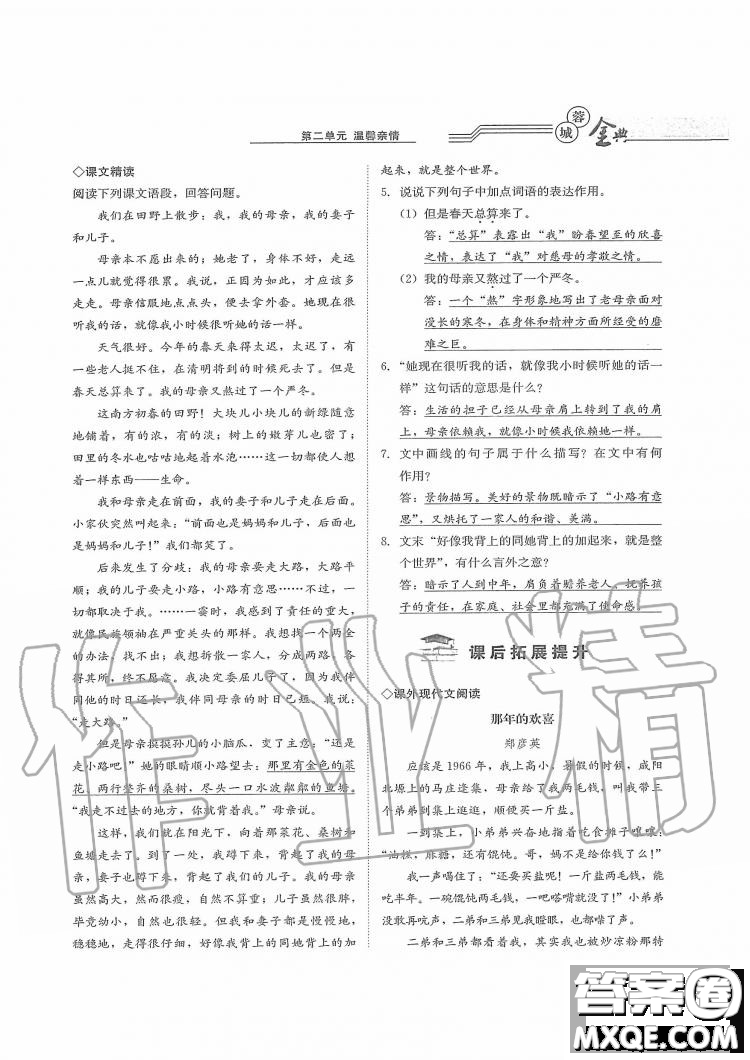 第二单元 温馨亲情
蓉城金典
◇课文精读
阅读下列课文语段，回答问题。
我们在田野上散步：我，我的母亲，我的妻子
和儿子。
母亲本不愿出来的；她老了，身体不好，走远
一点儿就觉得很累。我说，正因为如此，才应该多
走走。母亲信服地点点头，便去拿外套。她现在很
听我的话，就像我小时候很听她的话一样。
天气很好。今年的春天来得太迟，太迟了，有
一些老人挺不住，在清明将到的时候死去了。但是
春天总算来了。我的母亲又熬过了一个严冬。
这南方初春的田野！大块儿小块儿的新绿随意
地铺着，有的浓，有的淡；树上的嫩芽儿也密了；
田里的冬水也咕咕地起着水泡……这一切都使人想
着一样东西——生命。
我和母亲走在前面，我的妻子和儿子走在后面。
小家伙突然叫起来：“前面也是妈妈和儿子，后面也
是妈妈和儿子！”我们都笑了。
后来发生了分歧：我的母亲要走大路，大路平
顺；我的儿子要走小路，小路有意思……不过，一
切都取决于我。……一霎时，我感到了责任的重大，
就像民族领袖在严重关头的那样。我想找一个两全
的办法，找不出；我想拆散一家人，分成两路，各
得其所，终不愿意。我决定委屈儿子了，因为我伴
同他的时日还长，我伴同母亲的时日已短。我说：
“走大路。”
但是母亲摸摸孙儿的小脑瓜，变了主意：“还是
走小路吧！”她的眼睛顺小路望去：那里有金色的菜
花、两行整齐的桑树，尽头一口水波粼粼的鱼塘。
“我走不过去的地方，你就背着我。”母亲说。
这样，我们就在阳光下，向着那菜花、桑树和
鱼塘走去了。到了一处，我蹲下来，背起了我的母
亲，妻子也蹲下来，背起了我们的儿子。我的母亲
虽然高大，然而很瘦，自然不算重；儿子虽然很胖，
毕竟幼小，自然也很轻。但我和妻子都是慢慢地，
稳稳地，走得很仔细，好像我背上的同她背上的加
起来，就是整个世界。
5. 说说下列句子中加点词语的表达作用。
(1) 但是春天总算来了。
答：“总算”表露出“我”盼春望至的欣喜
之情，表达了“我”对慈母的孝敬之情。
(2) 我的母亲又熬过了一个严冬。
答：一个“熬”字形象地写出了老母亲面对
漫长的寒冬，在身体和精神方面所经受的磨
难之巨。
6. “她现在很听我的话，就像我小时候很听她的话一
样”这句话的意思是什么？
答：生活的担子已经从母亲肩上转到了我的肩
上，母亲依赖我，就像小时候我依赖她一样。
7. 文中画线的句子属于什么描写？在文中有何
作用？
答：景物描写。美好的景物既暗示了“小路有意
思”，又烘托了一家人的和谐、美满。
8. 文末“好像我背上的同她背上的加起来，就是整
个世界”，有什么言外之意？
答：暗示了人到中年，肩负着赡养老人、抚养孩
子的责任，在家庭、社会里都充满了使命感。
课后拓展提升
◇课外现代文阅读
那年的欢喜
郑彦英
应该是1966年，我上高小，暑假的时候，咸阳
北塬上的马庄逢集，母亲给了我两毛钱，叫我带三
个弟弟到集上逛逛，顺便买一斤盐。
一到集上，小弟弟兴奋地指着吃食摊子嚷嚷：
“油糕，麻糖，还有馄饨。哥，妈不是给你钱了么！”
我一声喝住了：“还要买盐呢！一斤盐两毛钱，能
吃半年。一碗馄饨两毛钱，一吧嗒嘴就没了！”小弟弟
没敢再吭声，二弟和三弟见我瞪眼，也都噤了声。
二弟和三弟都看着我，其实我也被炒凉粉那特
作业精
答案圈
MXQE.COM